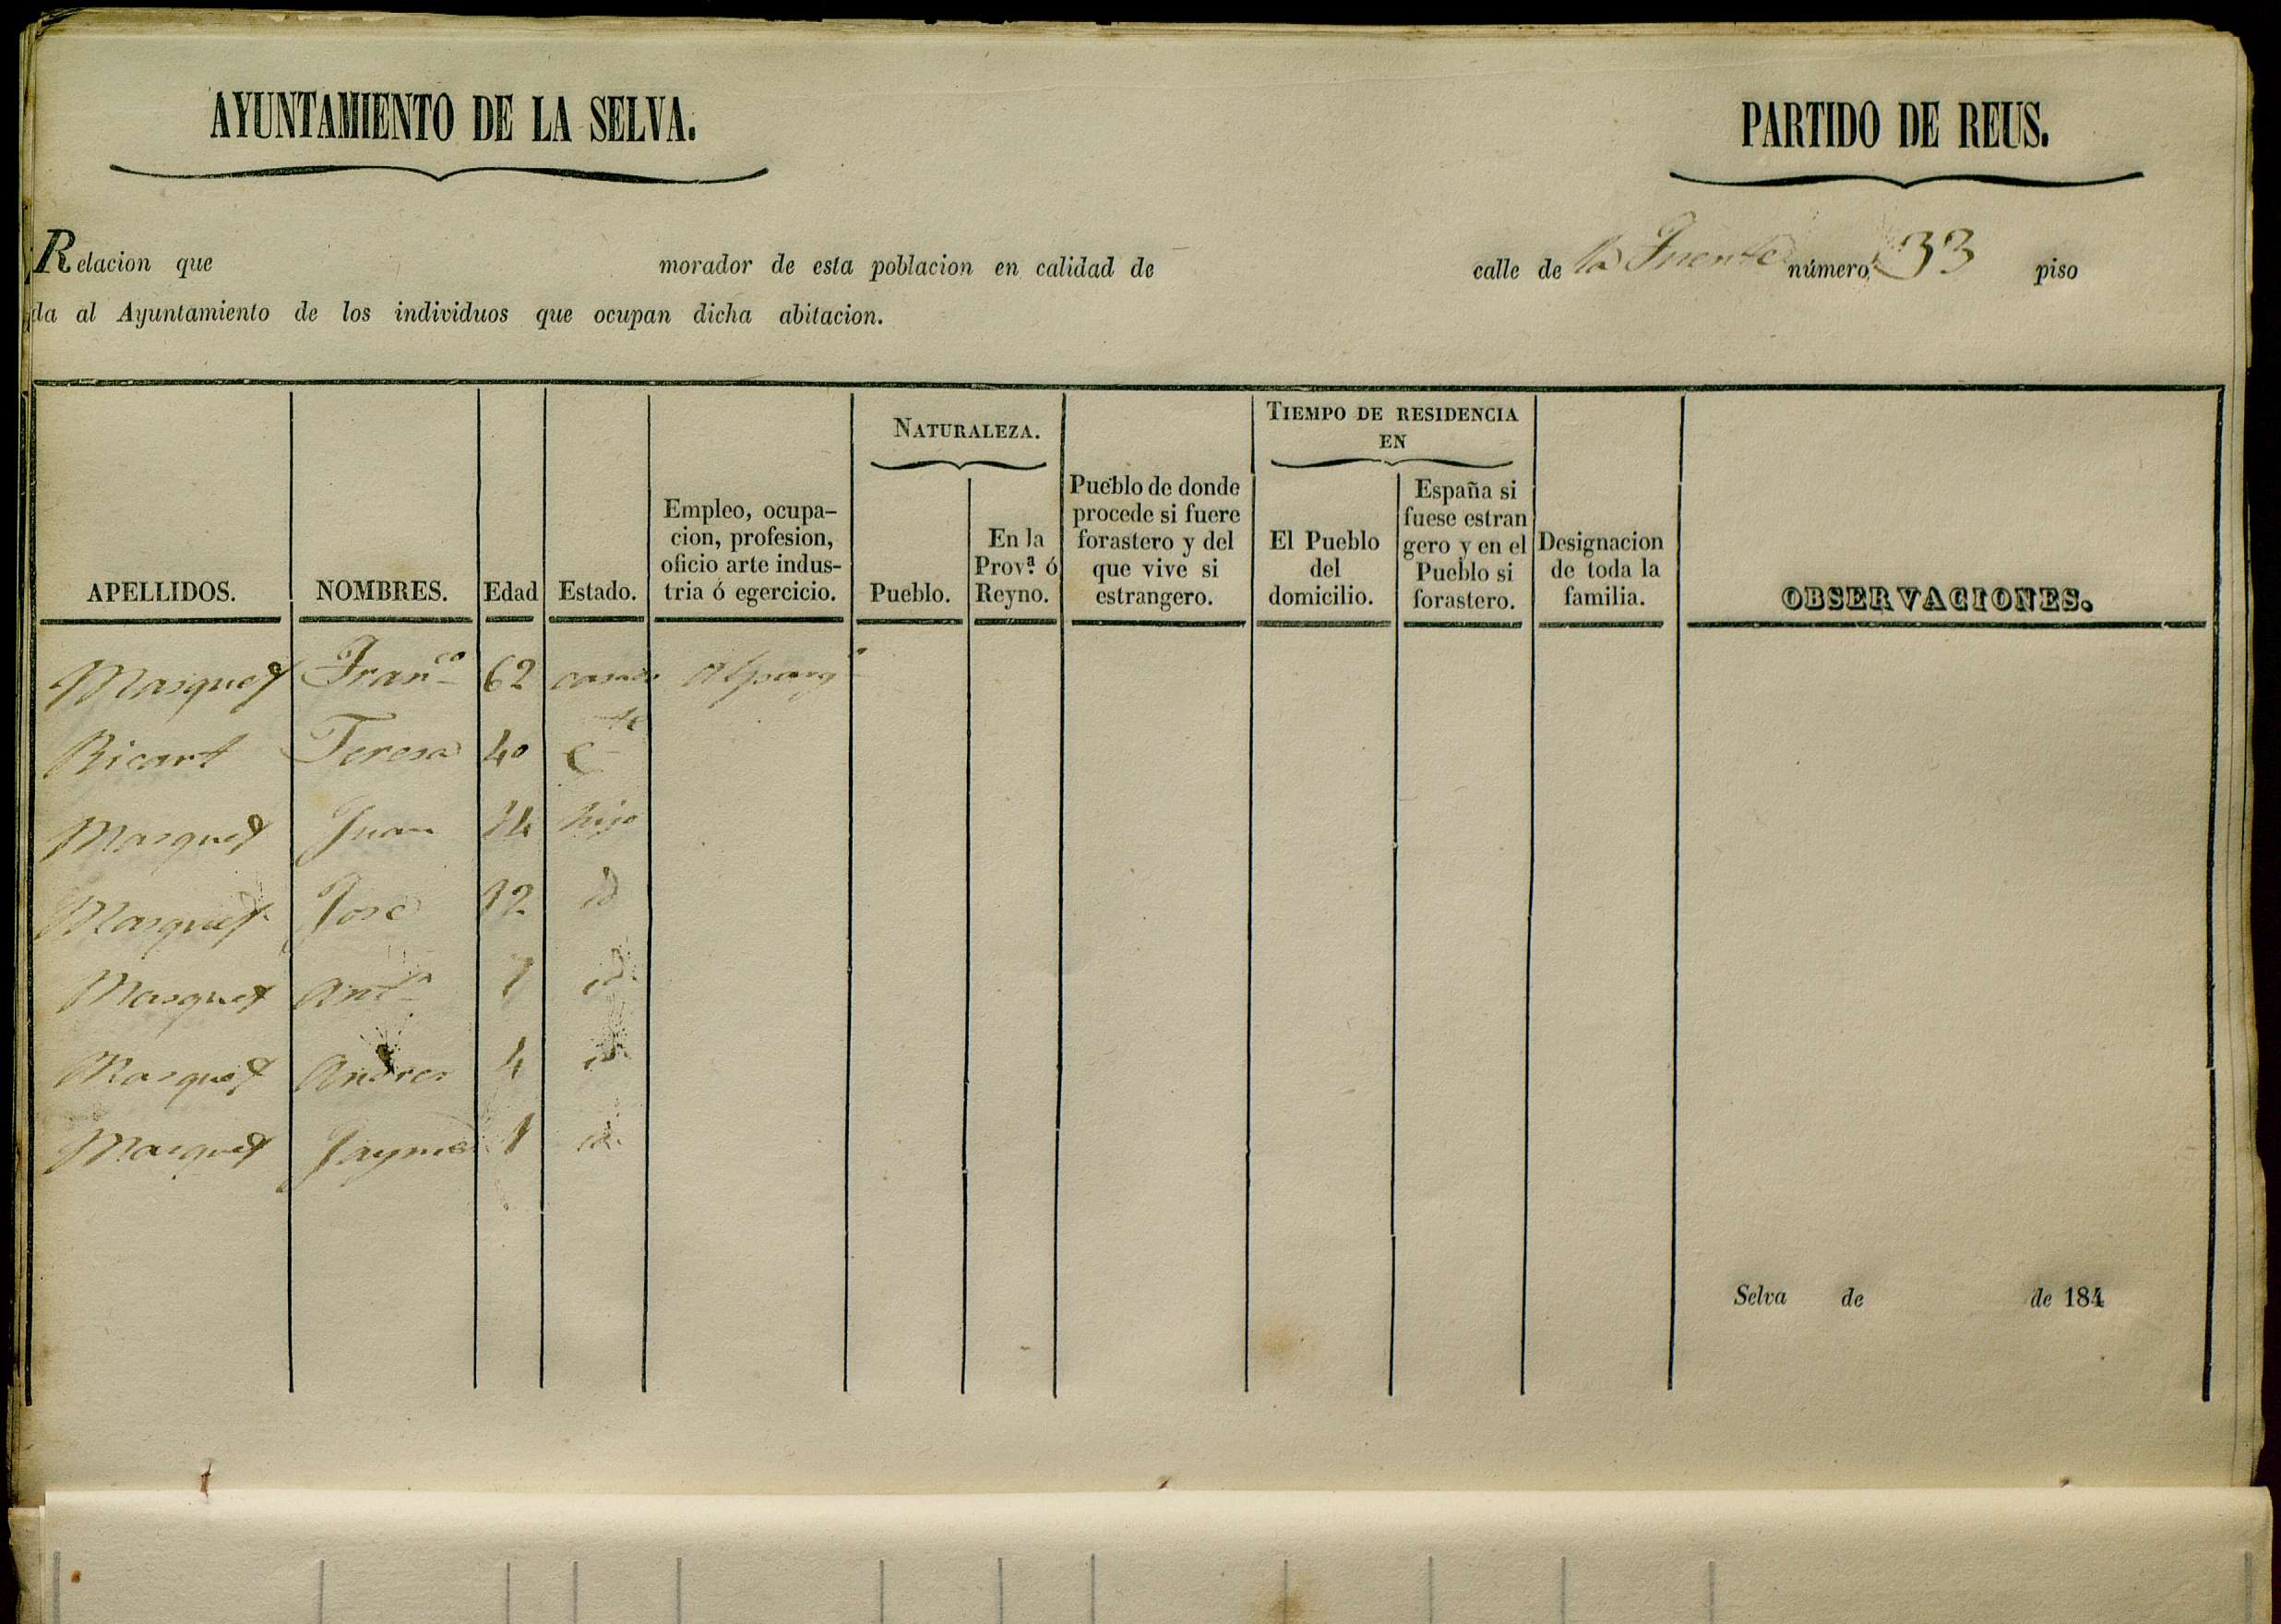 AYUNTAMIENTO DE LA SELVA.
PARTIDO DE REUS.
Relacion que morador de esta poblacion en calidad de calle de la Fuente número 33 piso
da al Ayuntamiento de los individuos que ocupan dicha abitacion.
APELLIDOS.
NOMBRES.
Edad
Estado.
Empleo, ocupa-
cion, profesion,
oficio arte indus-
tria ó egercicio.
NATURALEZA.
Pueblo.
En la
Prov.ª ó
Reyno.
Pueblo de donde
procede si fuere
forastero y del
que vive si
estrangero.
TIEMPO DE RESIDENCIA
EN
El Pueblo
del
domicilio.
España si
fuese estran
gero y en el
Pueblo si
forastero.
Designacion
de toda la
familia.
OBSERVACIONES.
Masquef Fran.co 62 casado Alparg.o
Ricart Teresa 40 C.te
Masquef Juan 14 hijo
Masquef Jose 12 id
Masquef Ant.n 7 id
Masquef Andres 4 id
Masquef Jayme 1 id.
Selva de de 184